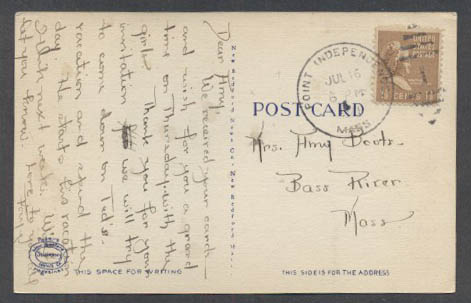 Dear Amy,
We received your cards
and wish for you a grand
time on Thursday with the
girls. Thank you for your
invitation we will try
to come down on Ted's
vacation and spend the
day. He starts his vacation
I think next week. Will
let you know. Love to
New Bedford News Co., New Bedford, Mass.
POINT INDEPENDENCE
JUL 16
PM
MASS
UNITED STATES POSTAGE
POST CARD
Mrs. Amy Boots
Bass River
Mass
THIS SPACE FOR WRITING
THIS SIDE IS FOR THE ADDRESS